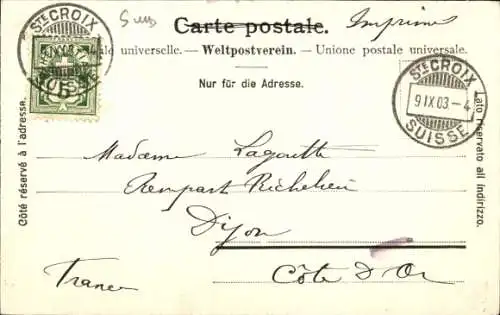 Carte postale.
Imprimé
ale universelle. — Weltpostverein. — Unione postale universale.
Nur für die Adresse.
STE CROIX
9 IX 03 – 4
SUISSE
STE CROIX
9 IX 03 – 4
SUISSE
5
Côté réservé à l'adresse.
Lato riservato all indirizzo.
Madame Lagoutte
Rempart Richelieu
Dijon
Côte d'Or
France